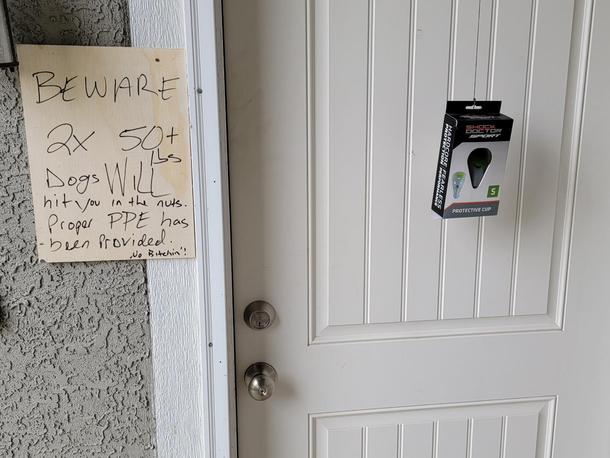 BEWARE
2x 50+
lbs
Dogs WILL
hit you in the nuts.
Proper PPE has
been Provided.
"No Bitchin"!
SHOCK
DOCTOR
SPORT
HARDCORE FEARLESS
S
PROTECTIVE CUP